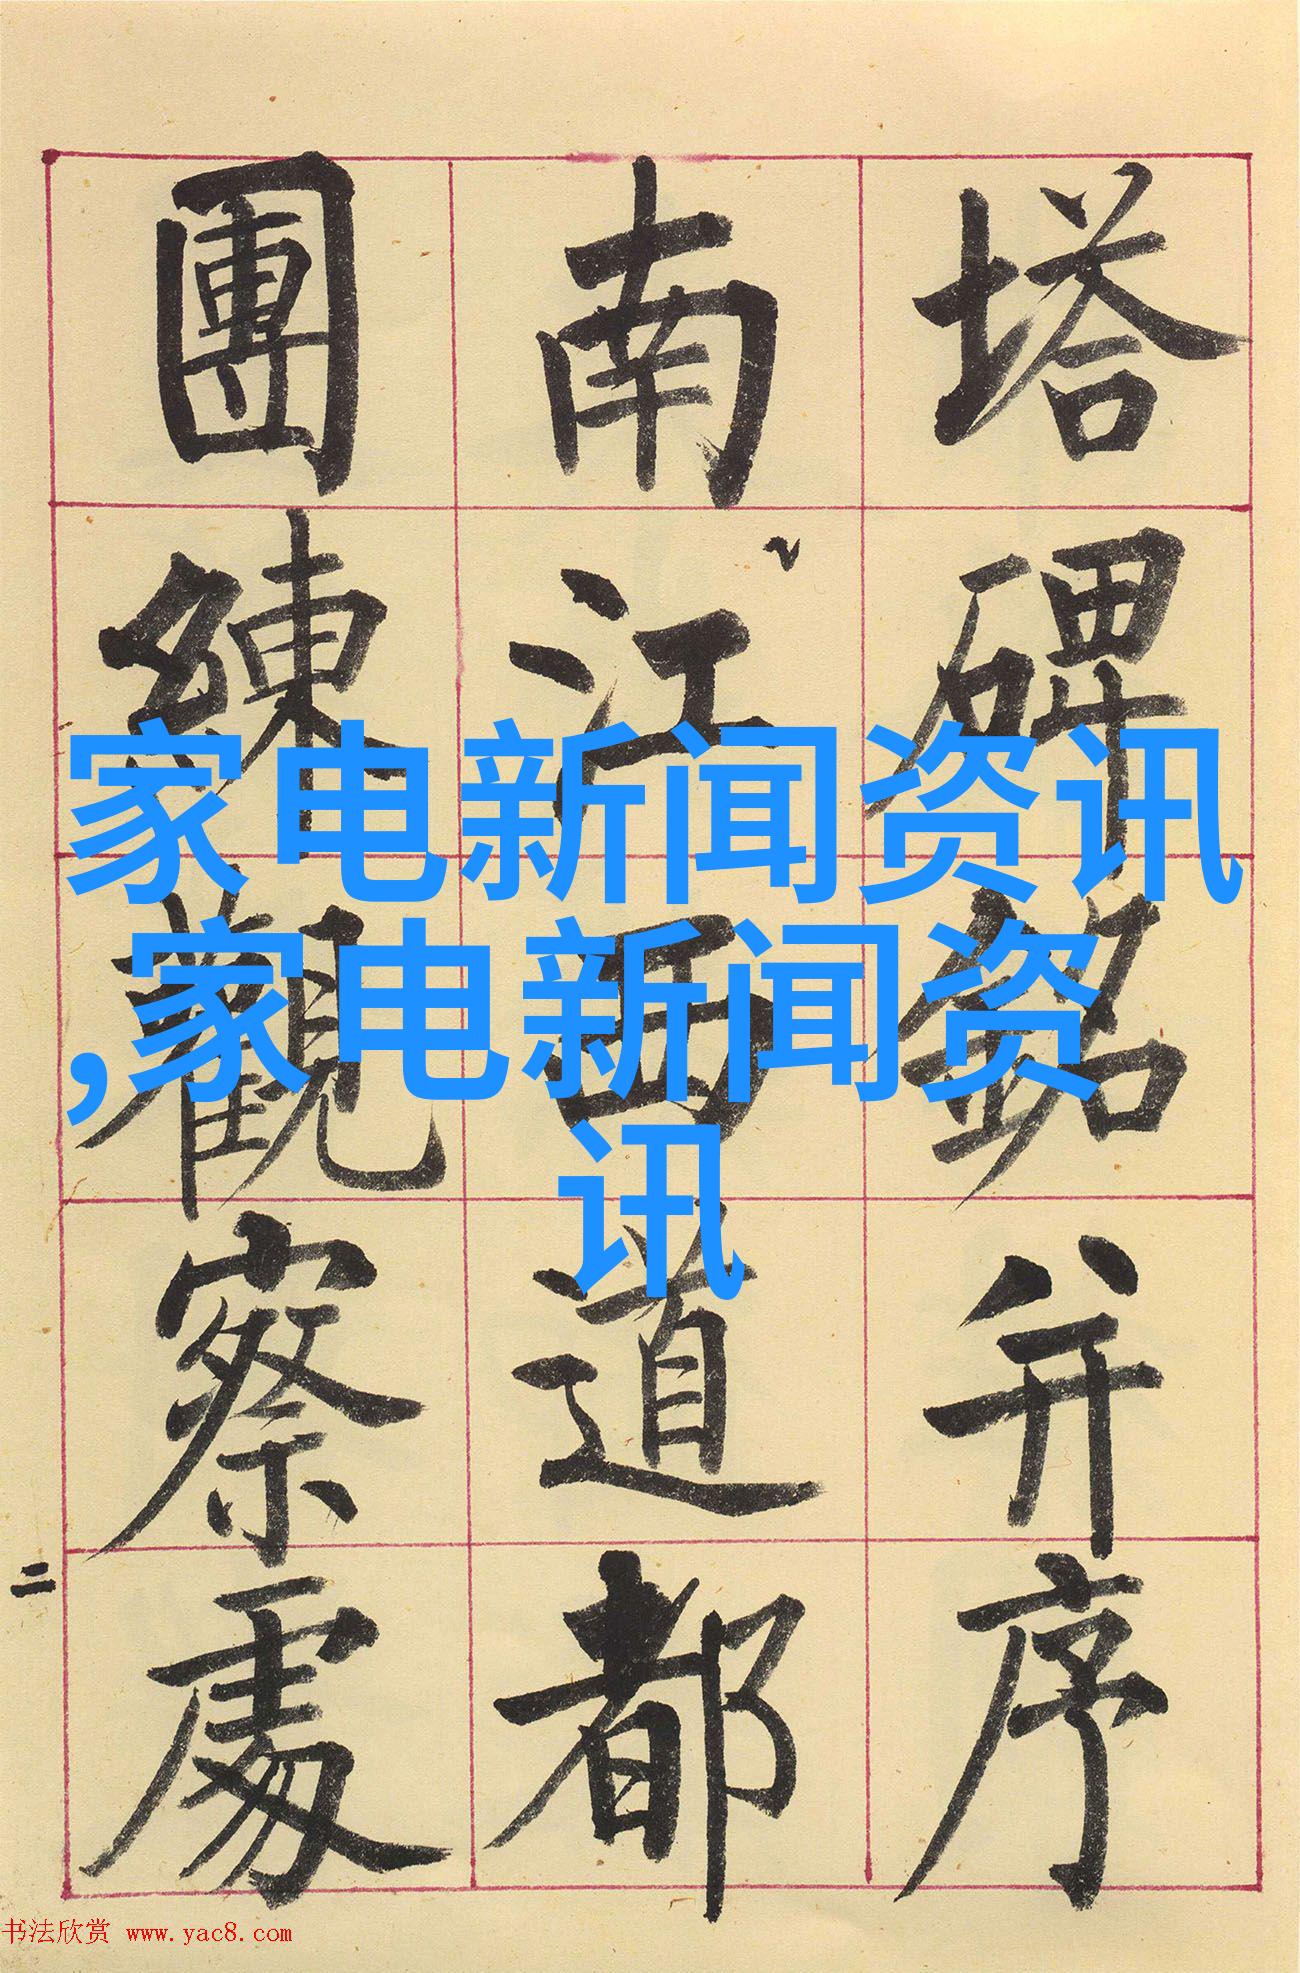 塔碑銘并序
南江西道都
團練觀察處
二
家电新闻资讯
,家电新闻资
讯
书法欣赏 www.yac8.com